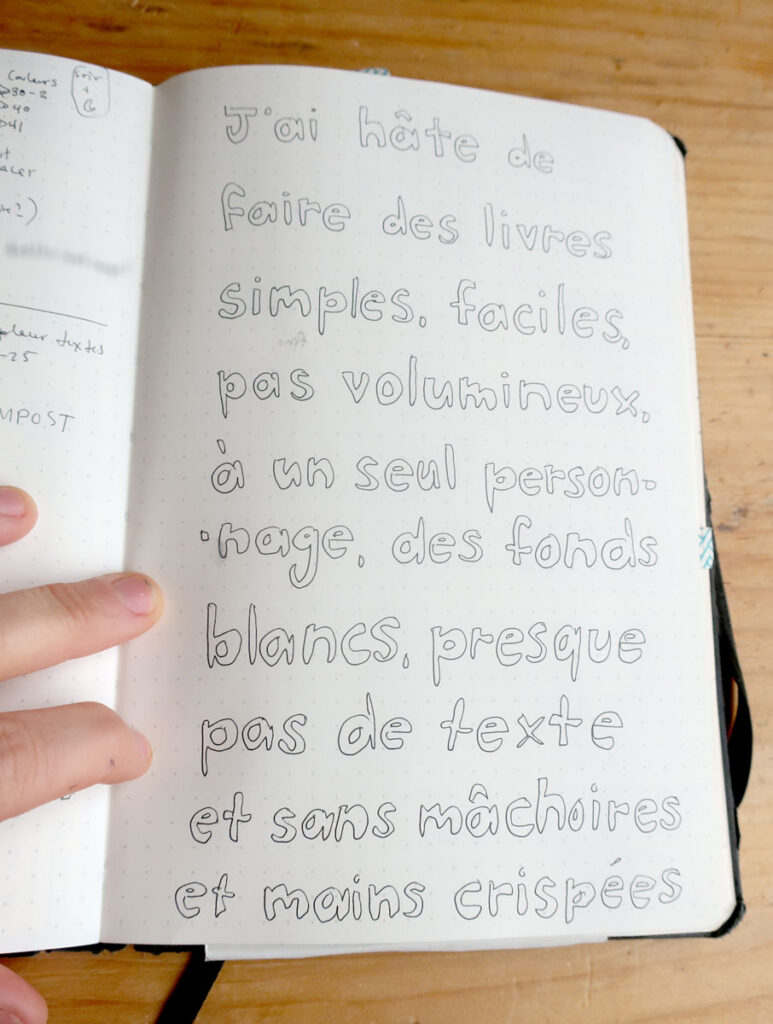 Couleurs
40
41
Soir
+
textes
-25
MPOST
J'ai hâte de
faire des livres
simples, faciles,
pas volumineux,
à un seul person-
-nage, des fonds
blancs, presque
pas de texte
et sans mâchoires
et mains crispées